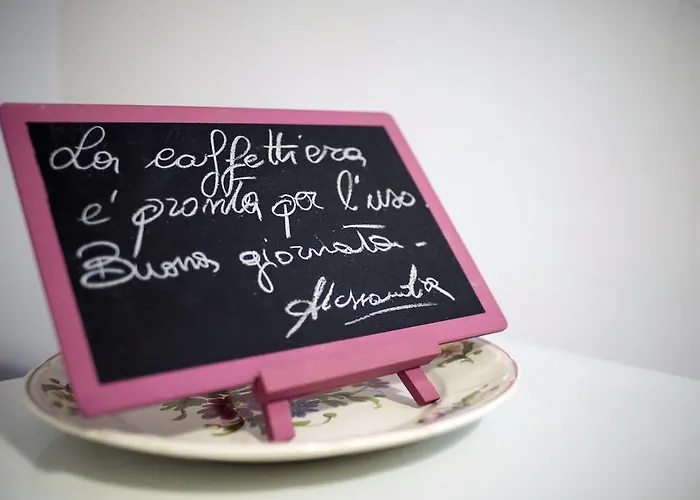 La caffettiera
e' pronta per l'uso.
Buona giornata -
Alessandra